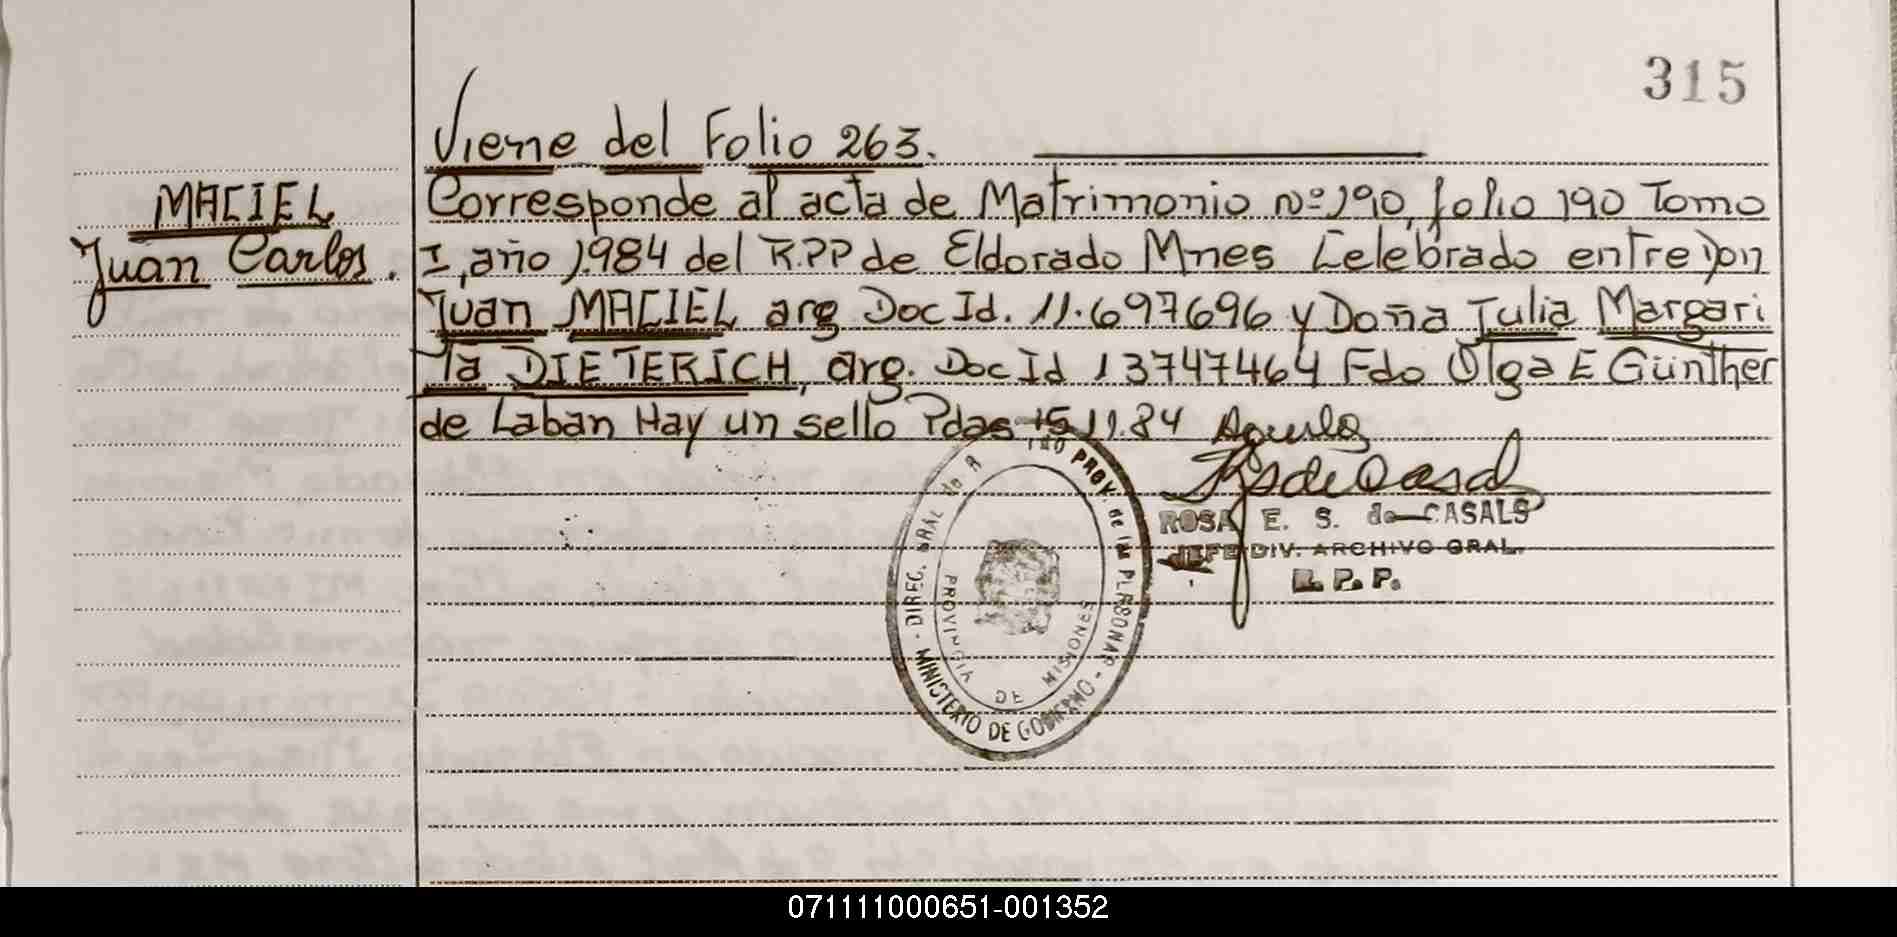 315
Viene del Folio 263.
MACIEL
Juan Carlos.
Corresponde al acta de Matrimonio Nº 190, folio 190 Tomo
I, año 1.984 del R.PP de Eldorado Mnes Celebrado entre Don
Juan MACIEL arg Doc Id. 11.697696 y Doña Julia Margari
ta DIETERICH, arg. Doc Id 13747464 Fdo Olga E Günther
de Laban Hay un sello Pdas 15 11.84
ROSA E. S. de CASALS
JEFE DIV. ARCHIVO GRAL.
R. P. P.
DIREC. GRAL de PROV. de las PERSONAS - MINISTERIO DE GOBIERNO -
PROVINCIA DE MISIONES
071111000651-001352